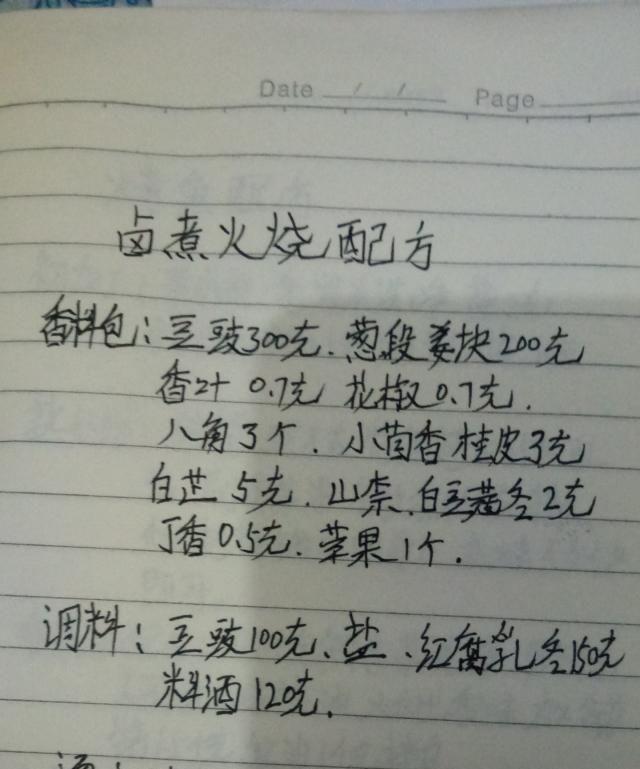 Date / / Page
卤煮火烧配方
香料包：豆豉300克、葱段姜块200克
香叶 0.7克 花椒0.7克.
八角3个、小茴香桂皮3克
白芷5克、山柰、白豆蔻各2克
丁香0.5克、草果1个.
调料：豆豉100克、盐、红腐乳各150克
料酒120克.